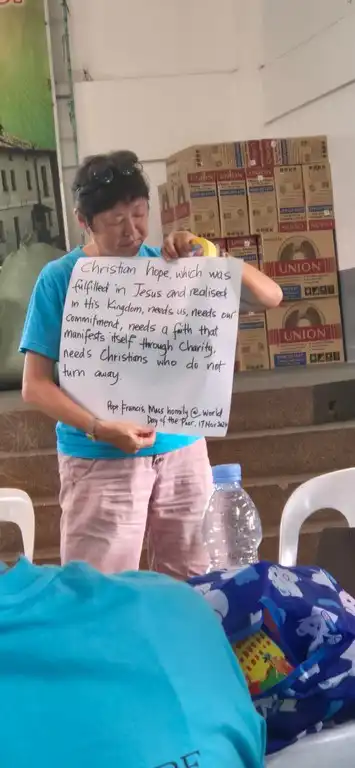 Christian Hope, which was
fulfilled in Jesus and realised
in His Kingdom, needs us, needs our
commitment, needs a faith that
manifests itself through Charity,
needs Christians who do not
turn away.
Pope Francis, Mass homily @ World
Day of the Poor, 17 Nov 2024
UNION
UNION